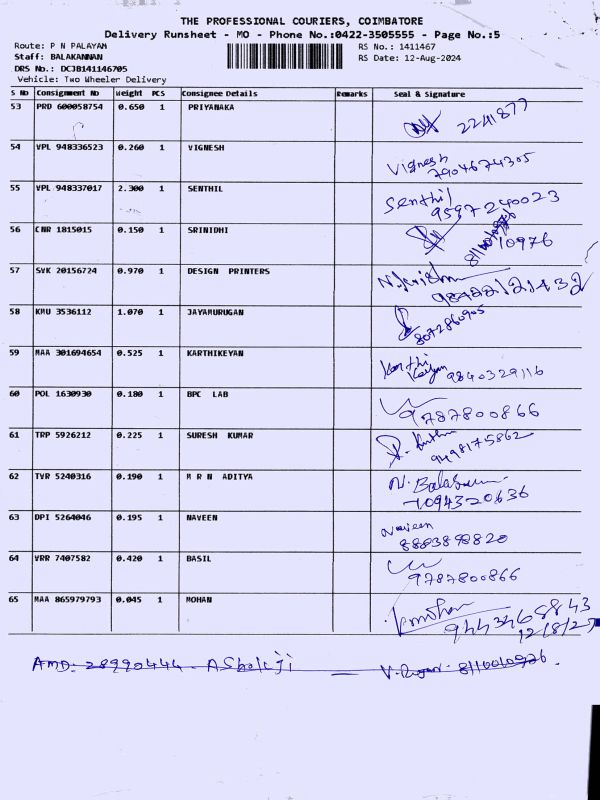 THE PROFESSIONAL COURIERS, COIMBATORE
Delivery Runsheet - MO - Phone No.:0422-3505555 - Page No.:5
Route: P N PALAYAM RS No.: 1411467
Staff: BALAKANNAN RS Date: 12-Aug-2024
DRS No.: DCJB141146705
Vehicle: Two Wheeler Delivery
S No Consignment No Weight PCS Consignee Details Remarks Seal & Signature
53 PRD 600058754 0.650 1 PRIYANAKA
2241877
54 VPL 948336523 0.260 1 VIGNESH
Vignesh
7904674305
55 VPL 948337017 2.300 1 SENTHIL
Senthil
9597240023
56 CNR 1815015 0.150 1 SRINIDHI
57 SVK 20156724 0.970 1 DESIGN PRINTERS
58 KMU 3536112 1.070 1 JAYAMURUGAN
8072860905
59 MAA 301694654 0.525 1 KARTHIKEYAN
Karthi
Keiyan 9840329116
60 POL 1630930 0.180 1 BPC LAB
9787800866
61 TRP 5926212 0.225 1 SURESH KUMAR
9498175862
62 TVR 5240316 0.190 1 M R N ADITYA
7094320636
63 DPI 5264046 0.195 1 NAVEEN
Naveen
8883898820
64 VRR 7407582 0.420 1 BASIL
9787800866
65 MAA 865979793 0.045 1 MOHAN
K.mohan
AMD: 28990444 - AShok ji